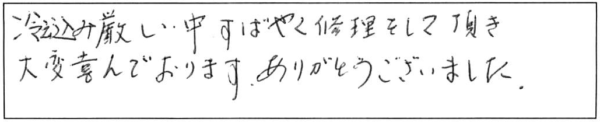 冷え込み厳しい中すばやく修理をして頂き
大変喜んでおります.ありがとうございました.